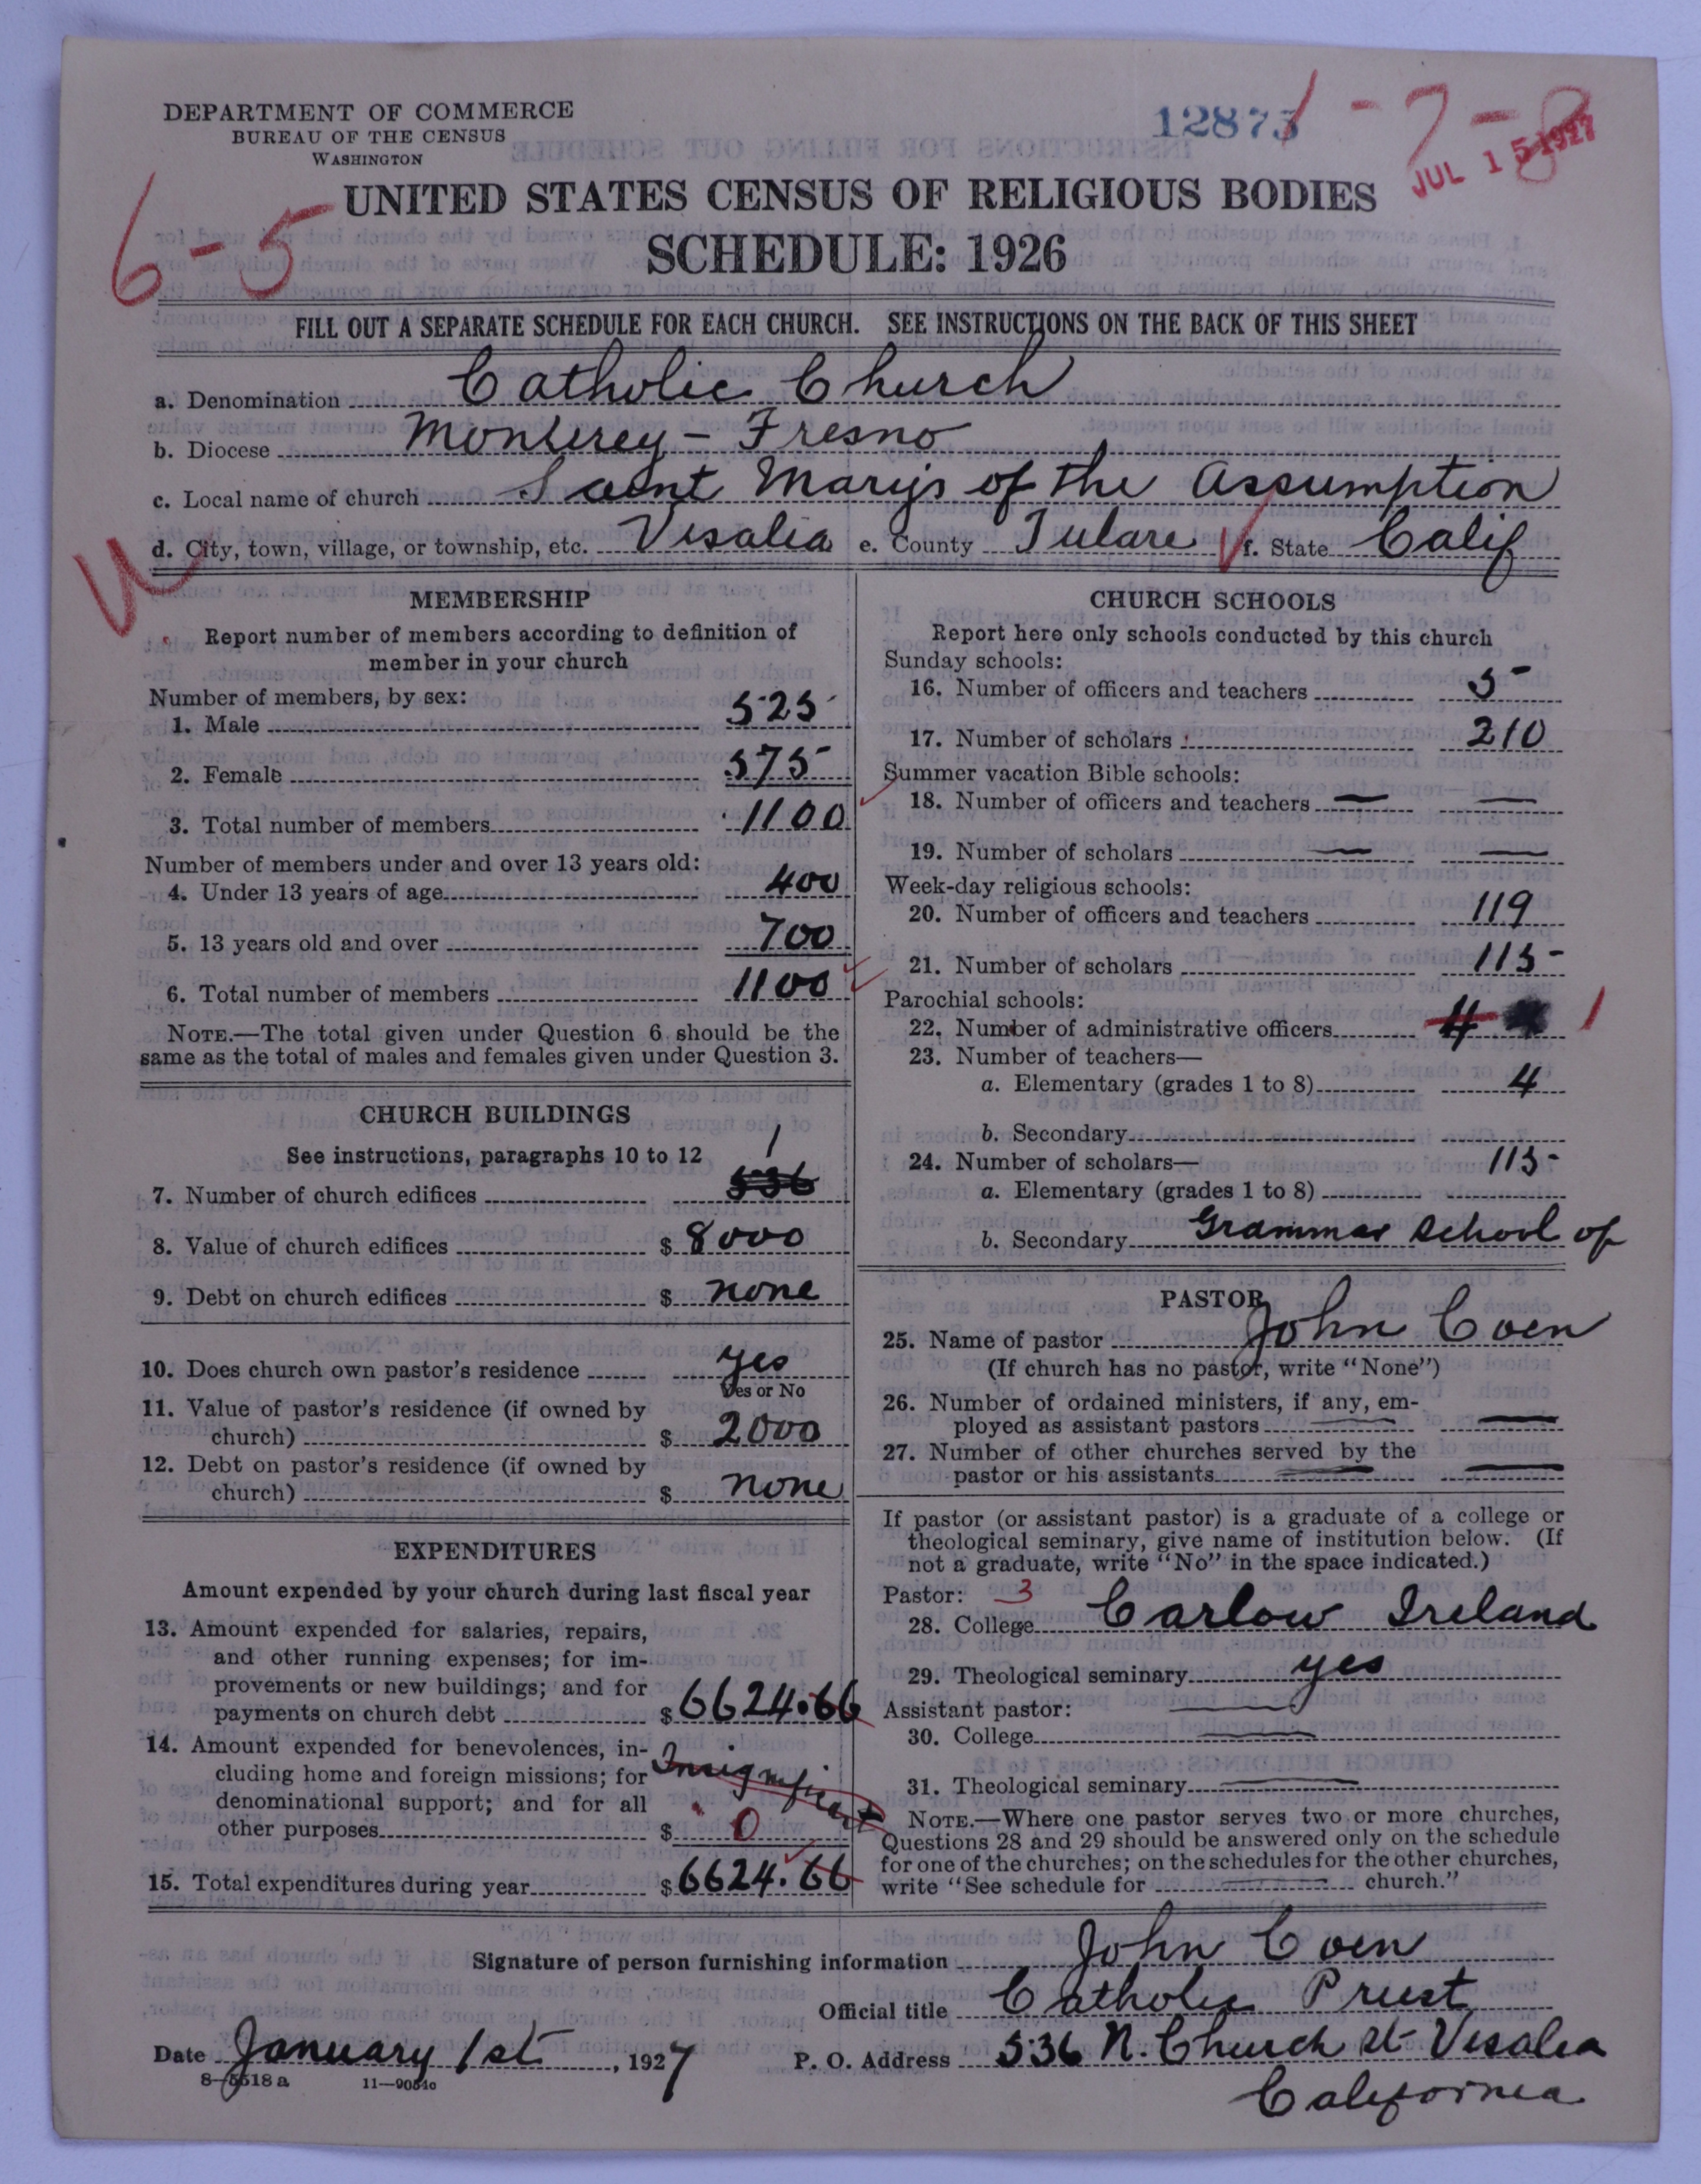 DEPARTMENT OF COMMERCE
BUREAU OF THE CENSUS
WASHINGTON
12873
1-7-8
JUL 15 1927
6-5
UNITED STATES CENSUS OF RELIGIOUS BODIES
SCHEDULE: 1926
FILL OUT A SEPARATE SCHEDULE FOR EACH CHURCH. SEE INSTRUCTIONS ON THE BACK OF THIS SHEET
a. Denomination Catholic Church
b. Diocese Monterey - Fresno
c. Local name of church Saint Marys of the Assumption
d. City, town, village, or township, etc. Visalia e. County Tulare f. State Calif
MEMBERSHIP
Report number of members according to definition of
member in your church
Number of members, by sex:
1. Male 525
2. Female 575
3. Total number of members 1100
Number of members under and over 13 years old:
4. Under 13 years of age 400
5. 13 years old and over 700
6. Total number of members 1100
NOTE.—The total given under Question 6 should be the
same as the total of males and females given under Question 3.
CHURCH BUILDINGS
See instructions, paragraphs 10 to 12
1
7. Number of church edifices 536
8. Value of church edifices $ 8000
9. Debt on church edifices $ none
10. Does church own pastor's residence yes
Yes or No
11. Value of pastor's residence (if owned by
church) $ 2000
12. Debt on pastor's residence (if owned by
church) $ none
EXPENDITURES
Amount expended by your church during last fiscal year
13. Amount expended for salaries, repairs,
and other running expenses; for im-
provements or new buildings; and for
payments on church debt $ 6624.66
14. Amount expended for benevolences, in-
cluding home and foreign missions; for
denominational support; and for all
other purposes $ Insignificant 0
15. Total expenditures during year $ 6624.66
CHURCH SCHOOLS
Report here only schools conducted by this church
Sunday schools:
16. Number of officers and teachers 5
17. Number of scholars 210
Summer vacation Bible schools:
18. Number of officers and teachers — —
19. Number of scholars — —
Week-day religious schools:
20. Number of officers and teachers 119
21. Number of scholars 115
Parochial schools:
22. Number of administrative officers 4 1
23. Number of teachers—
a. Elementary (grades 1 to 8) 4
b. Secondary
24. Number of scholars— 115
a. Elementary (grades 1 to 8)
b. Secondary Grammar School of
PASTOR
25. Name of pastor John Coen
(If church has no pastor, write "None")
26. Number of ordained ministers, if any, em-
ployed as assistant pastors — —
27. Number of other churches served by the
pastor or his assistants — —
If pastor (or assistant pastor) is a graduate of a college or
theological seminary, give name of institution below. (If
not a graduate, write "No" in the space indicated.)
Pastor: 3
28. College Carlow Ireland
29. Theological seminary yes
Assistant pastor: —
30. College —
31. Theological seminary —
NOTE.—Where one pastor serves two or more churches,
Questions 28 and 29 should be answered only on the schedule
for one of the churches; on the schedules for the other churches,
write "See schedule for — church."
Signature of person furnishing information John Coen
Official title Catholic Priest
Date January 1st, 1927 P. O. Address 536 N. Church St Visalia
California
8—5518 a 11—9054c